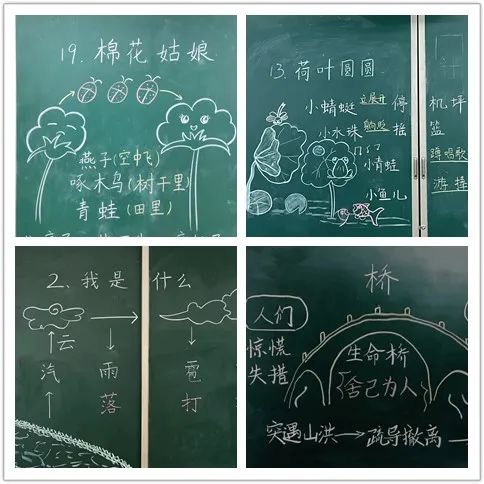 19. 棉花姑娘
燕子(空中飞)
啄木鸟(树干里)
青蛙(田里)
13. 荷叶圆圆
小蜻蜓 立展开 停
小水珠 躺眨 摇
小青蛙
小鱼儿
机坪
篮
蹲唱歌
游捧
2. 我是什么
云
汽 雨 雹
落 打
桥
人们
惊慌
失措
生命桥
舍己为人
突遇山洪→疏导撤离→